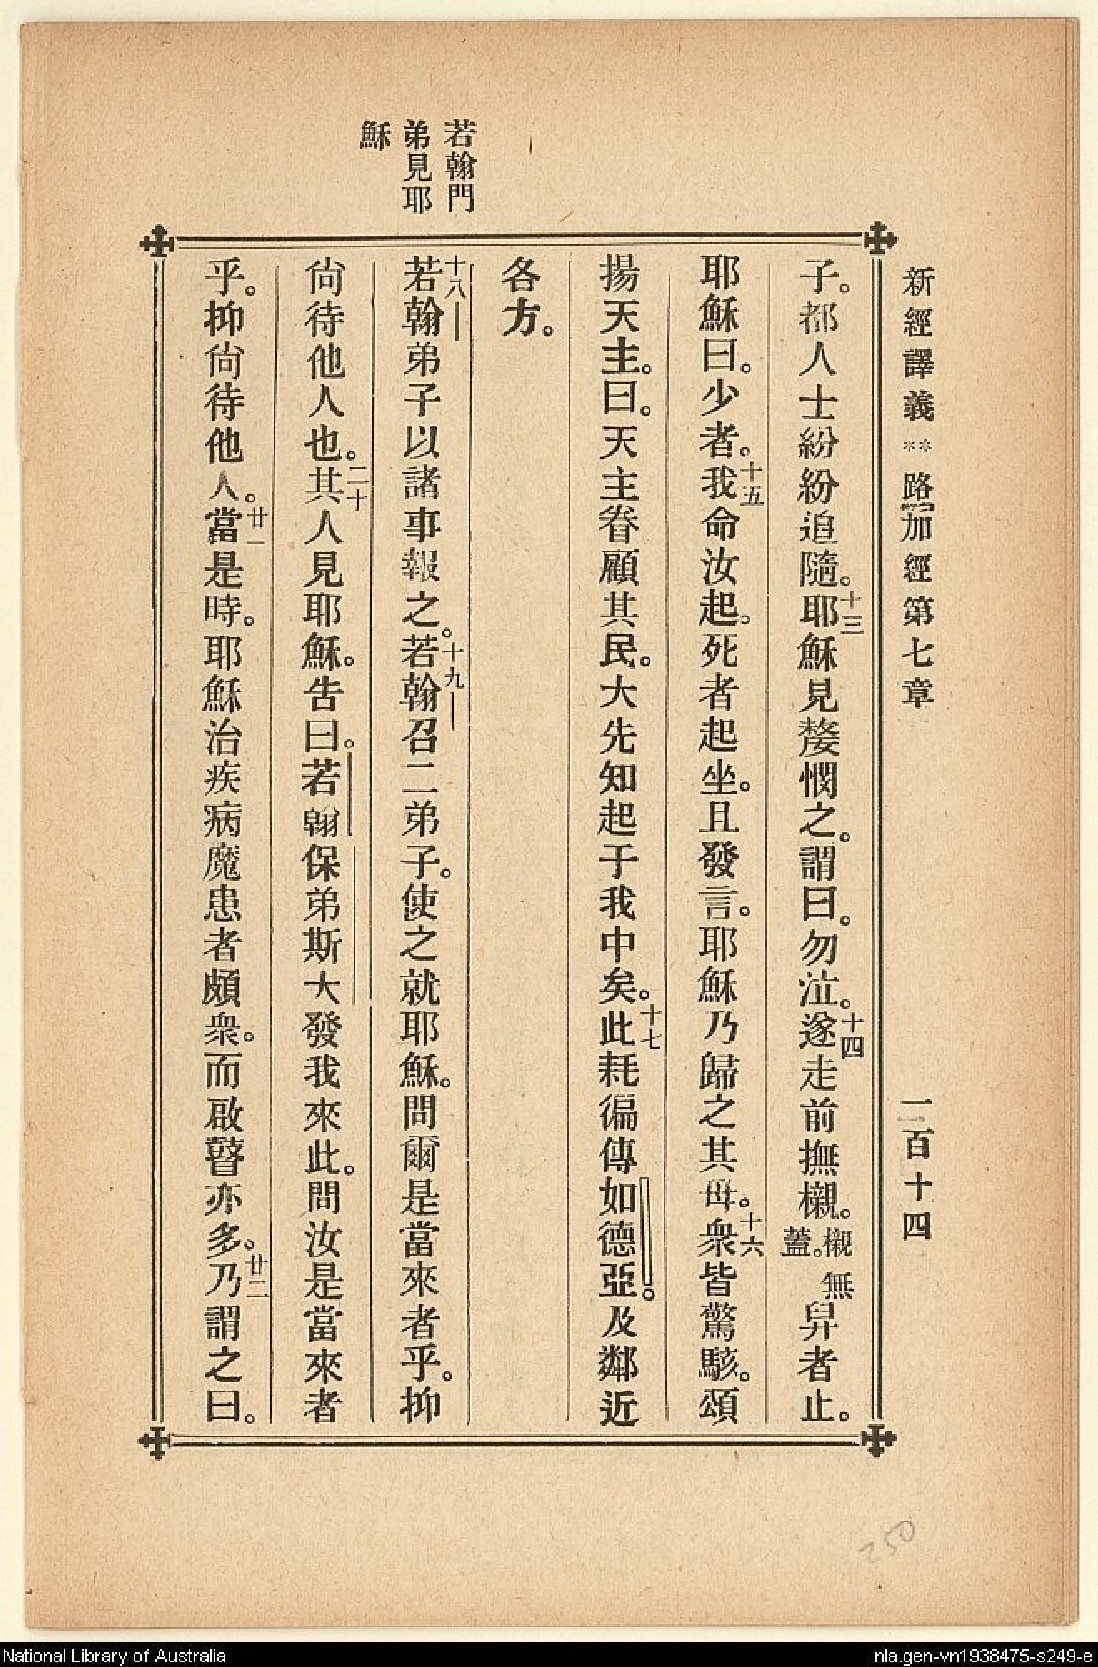 新經譯義 ** 路加經第七章 一百十四
子。都人士紛紛追隨。十三耶穌見嫠憫之。謂曰。勿泣。十四遂走前撫櫬。櫬無蓋。舁者止。
耶穌曰。少者。十五我命汝起。死者起坐。且發言。耶穌乃歸之其母。十六衆皆驚駭。頌
揚天主。曰。天主眷顧其民。大先知起于我中矣。十七此耗徧傳如德亞。及鄰近
各方。
若翰門
弟見耶
穌
十八若翰弟子以諸事報之。十九若翰召二弟子。使之就耶穌。問爾是當來者乎。抑
尙待他人也。二十其人見耶穌。吿曰。若翰保弟斯大發我來此。問汝是當來者
乎。抑尙待他人。廿一當是時。耶穌治疾病魔患者頗衆。而啟瞽亦多。廿二乃謂之曰。
250
National Library of Australia
nla.gen-vn1938475-s249-e